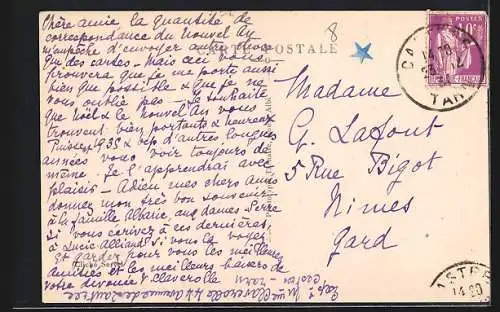 Chère amie la quantité de
correspondance du Nouvel An
m'empêche d'envoyer autre chose
que des cartes - Mais ceci vous
prouvera que je me porte aussi
bien que possible & que je ne
vous oublie pas - Je souhaite
que Noël & le nouvel An vous
trouvent bien portants & heureux
Puisse 1938 & bien d'autres longues
années vous voir toujours de
même. Je l'apprendrai avec
plaisir - Adieu mes chers amis
donnez mon très bon souvenir
à la famille Albaric, aux dames Serre
Si vous écrivez à ces dernières
à Lucie Alliand si vous la voyez
Et gardez pour vous les meilleures
amitiés et les meilleurs baisers de
votre dévouée V Claverolle
Claverolle
CARTE POSTALE
8
Madame
G. Lafont
5 Rue Bigot
Nimes
Gard
POSTES
CASTRES
TARN
14 20